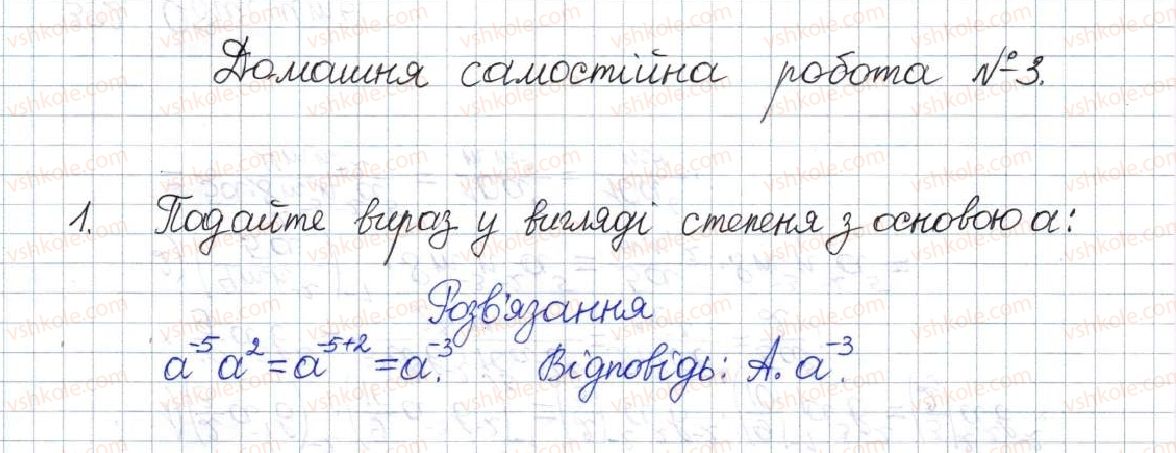 Домашня самостійна робота № 3.
1. Подайте вираз у вигляді степеня з основою a:
Розв'язання
a⁻⁵a² = a⁻⁵⁺² = a⁻³. Відповідь: А. a⁻³.